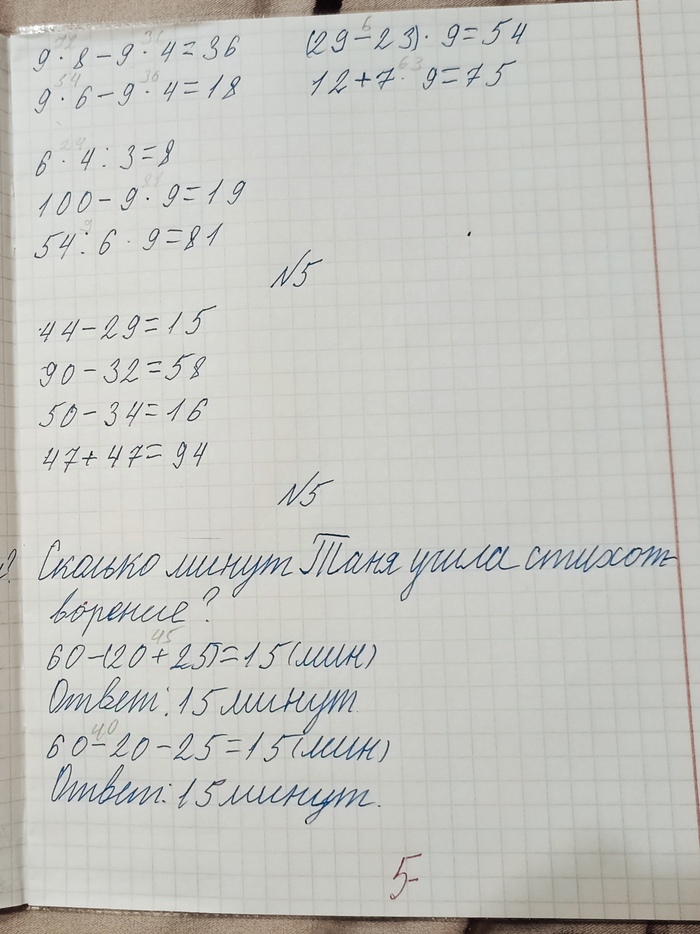 9 · 8 - 9 · 4 = 36
9 · 6 - 9 · 4 = 18
(29 - 23) · 9 = 54
12 + 7 · 9 = 75
6 · 4 : 3 = 8
100 - 9 · 9 = 19
54 : 6 · 9 = 81
№5
44 - 29 = 15
90 - 32 = 58
50 - 34 = 16
47 + 47 = 94
№5
Сколько минут Таня учила стихот
ворение?
60 - (20 + 25) = 15 (мин)
Ответ: 15 минут
60 - 20 - 25 = 15 (мин)
Ответ: 15 минут.
5-